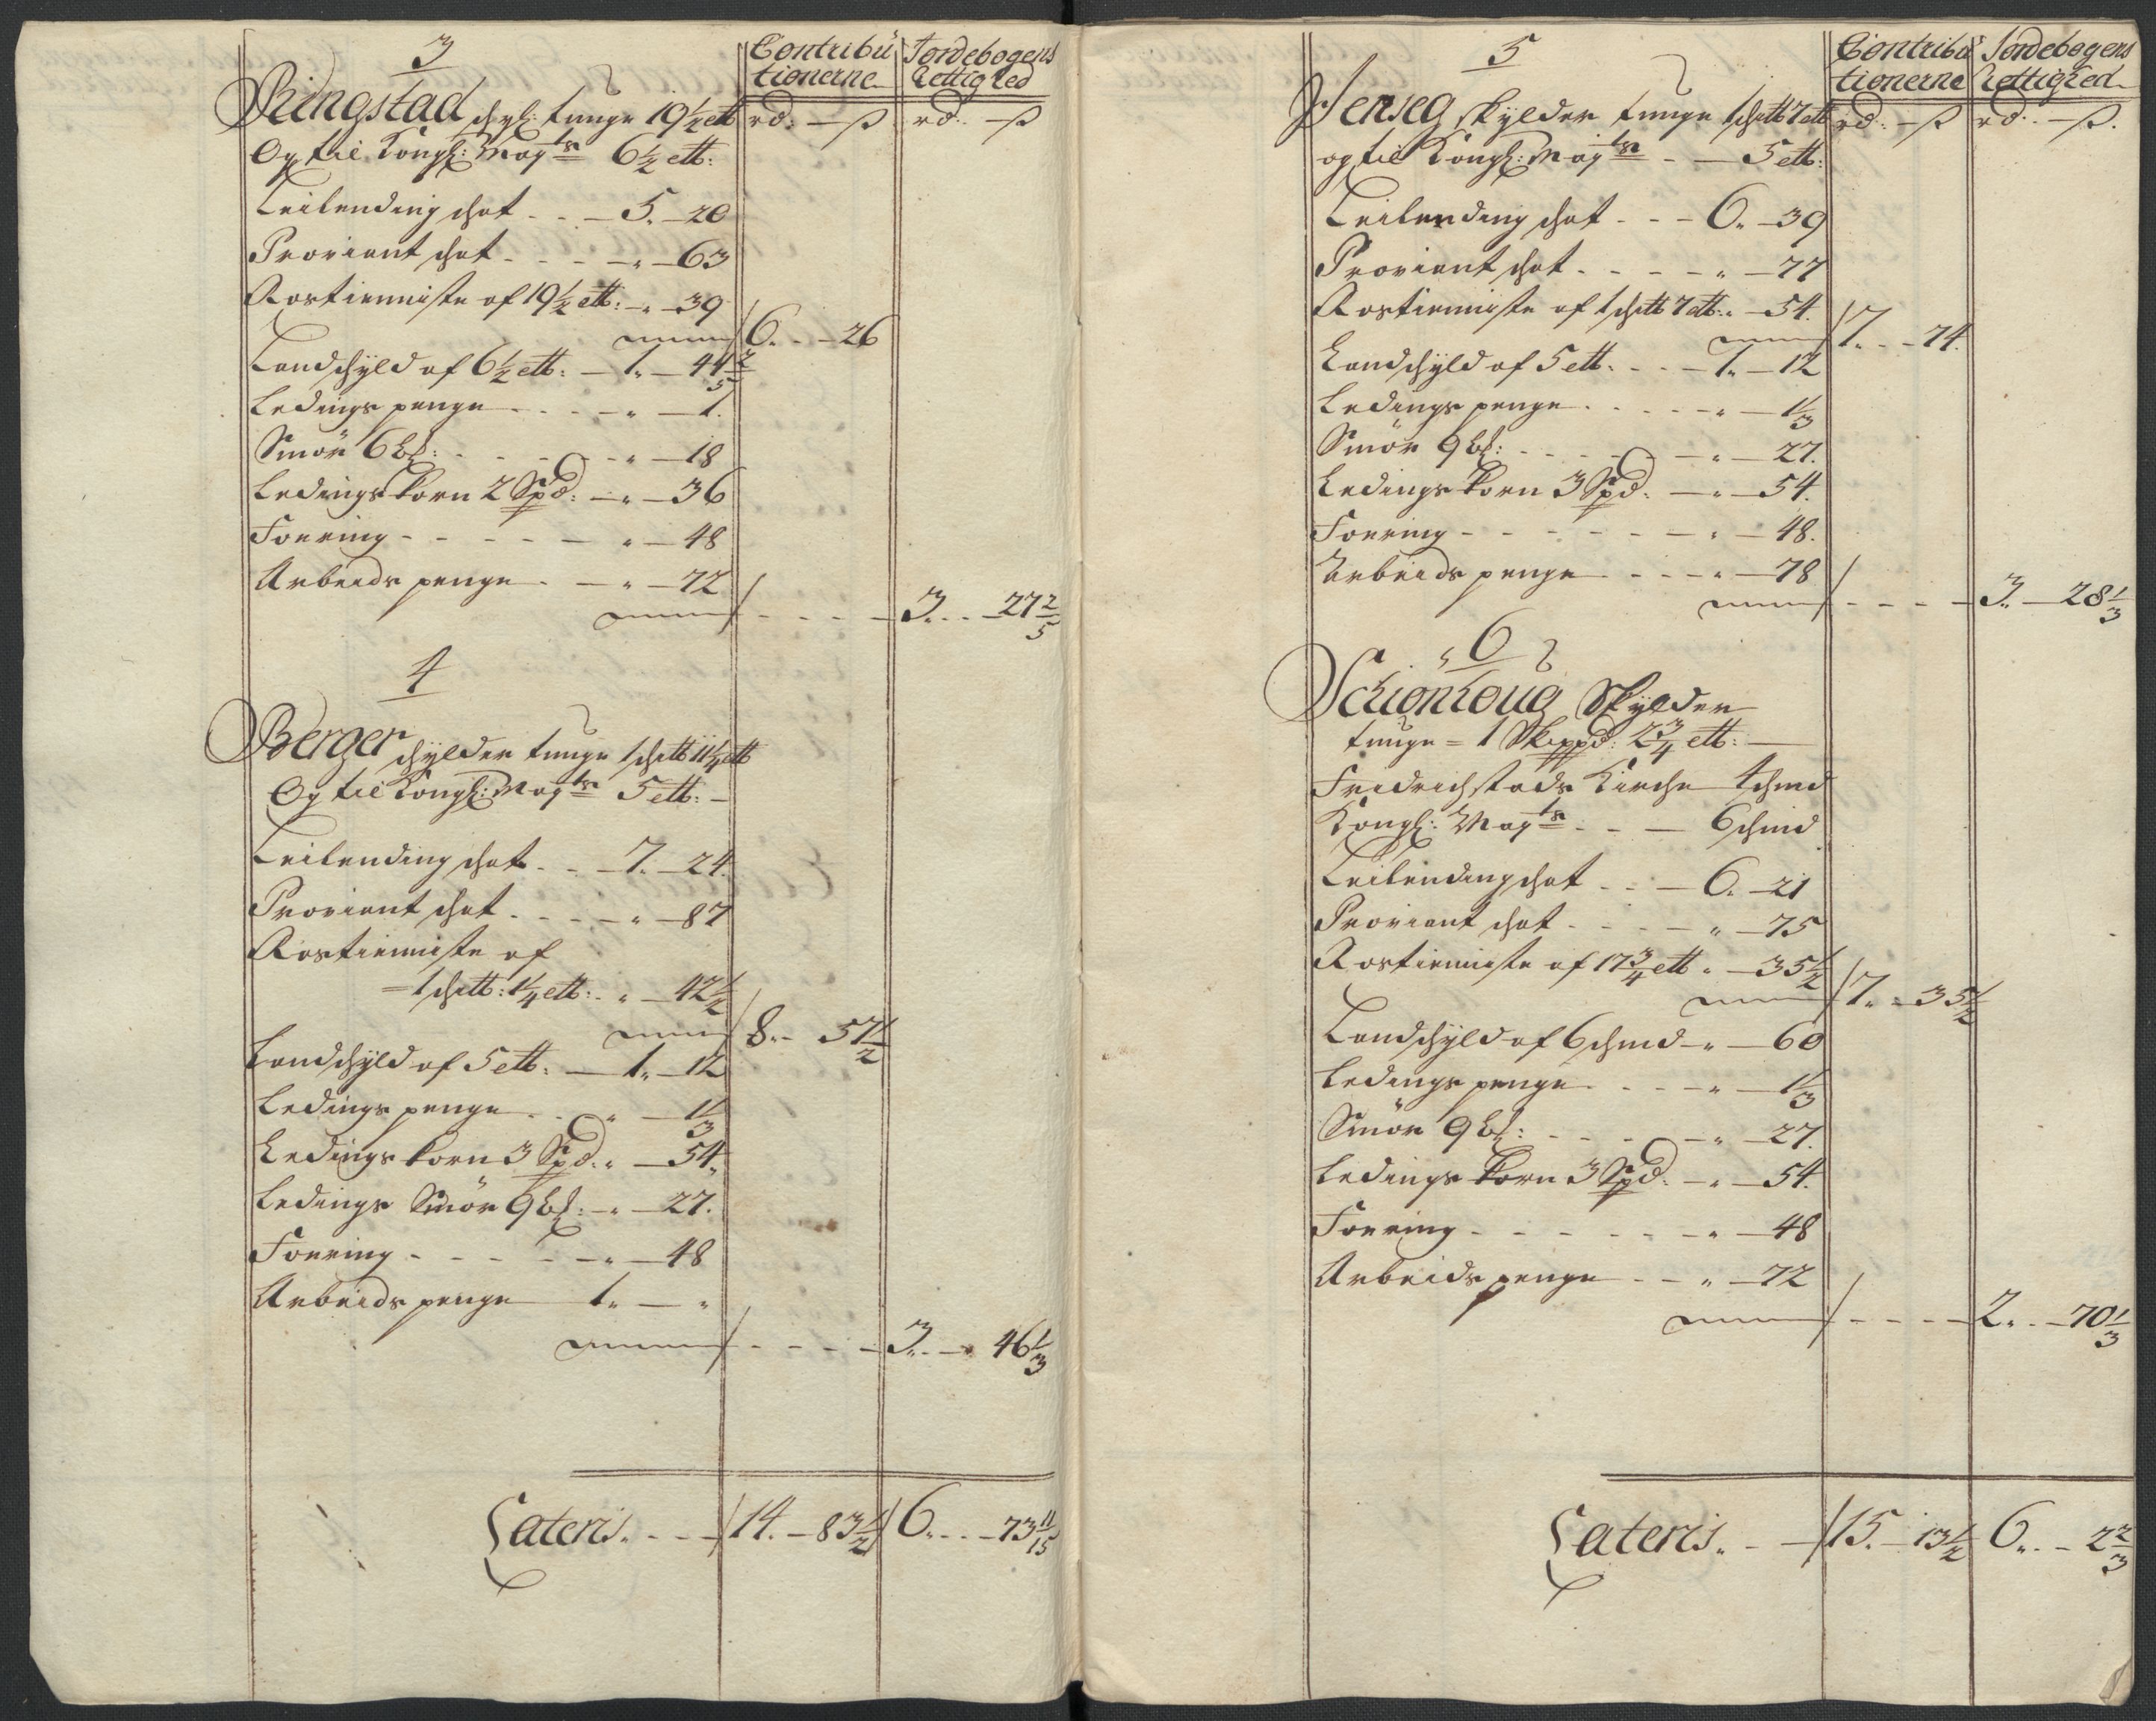 Contribu Jordebogens
tionerne Rettighed
rd: — ß rd. — ß
3
Ringstad schyl: tunge 19½ ett
Og til Kongl: Mayts 6½ ett:
Leilending schat . . — 5 „ — 20
Proviant schat . . . — „ — 63
Rostienniste af 19½ ett: — „ — 39
6 „ — 26
Landschyld af 6½ ett: — 1 „ — 44 2/5
Ledings penge . . . — „ — 1.
Smör 6 bl: . . . — „ — 18
Ledings korn 2 Spd: — „ — 36
Foering - - - - — „ — 48
Arbeids penge . — „ — 72
3 „ — 27 2/5
4
Berger schylder tunge 1 schtt 11¼ ett
Og til Kongl: Mayts 5 ett: —
Leilending schat . . — 7 „ — 24.
Proviant schat . . . — „ — 87
Rostienniste af
= 1 schtt: 1¼ ett: . „ — 42½
8 „ — 57½
Landschyld af 5 ett: — 1 „ — 12
Ledings penge . . „ — 1⅓
Ledings korn 3 Spd. „ — 54 „
Ledings Smör 9 bl: — „ — 27.
Foering - - - - — „ — 48
Arbeids penge — 1 „ — „
3 „ — 46⅓
Lateris. - - - 14. — 83½ 6 „ — 73 11/15
Contribu Jordebogens
tionerne Rettighed
rd: — ß rd. — ß.
5
Jenseg skylder tunge 1 schtt 7 ett
og til Kongl: Mayts - — 5 ett:
Leilending schat - - - 6 „ — 39
Proviant schat . - - - „ — 77
Rostienniste af 1 schtt 7 ett: „ — 54.
7 „ — 74.
Landschyld af 5 ett . - - 1 „ — 12
Ledings penge . . . . — „ — 1⅓
Smör 9 bl: - - - - — „ — 27.
Ledings korn 3 Spd: — „ — 54.
Foering - - - - - — „ — 48.
Arbeids penge . - - - „ — 78
3 „ — 28⅓
6
Schionhoug Skylder
tunge = 1 Skippd: 2¾ ett: —
Fridrichstads Kirche 4 schind
Kongl: Mayts - - — 6 schind
Leilending schat . - — 6 „ — 21
Proviant schat . - - — „ — 75
Rostienniste af 17¾ ett „ — 35½
7 „ — 35½
Landschyld af 6 schind — „ — 60
Ledings penge . . . — „ — 1⅓
Smör 9 bl: - - - - — „ — 27.
Ledings korn 3 Spd: — „ — 54.
Foering - - - - - — „ — 48
Arbeids penge - — „ — 72
2 „ — 70⅓
Lateris „ - — 15. — 13½ 6 „ — 2⅔